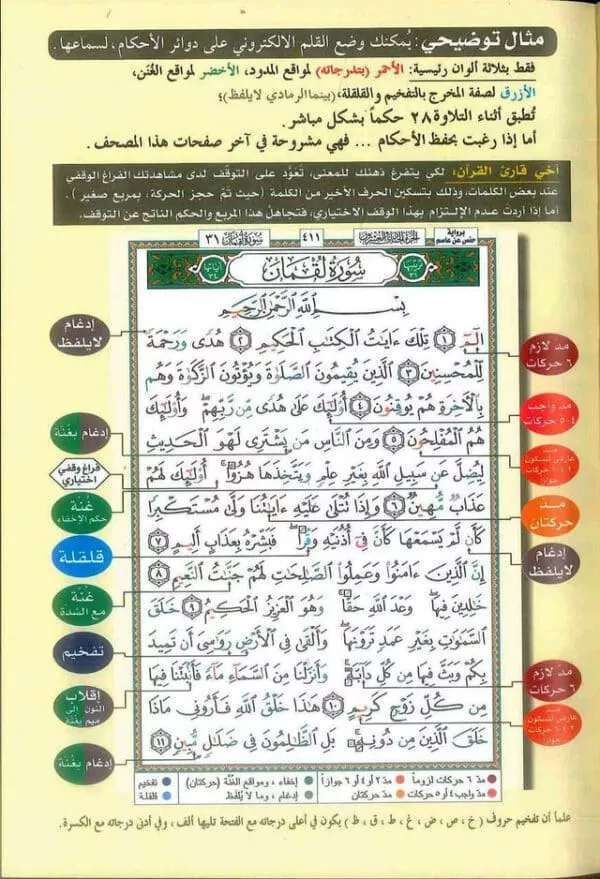 مثال توضيحي: يُمكنك وضع القلم الالكتروني على دوائر الأحكام، لسماعها.
فقط بثلاثة ألوان رئيسية: الأحمر (بتدرجاته) لمواقع المدود، الأخضر لمواقع الغُنَن،
الأزرق لصفة المخرج بالتفخيم والقلقلة،(بينما الرمادي لايلفظ)؛
تُطبق أثناء التلاوة ٢٨ حكماً بشكل مباشر.
أما إذا رغبت بحفظ الأحكام ... فهي مشروحة في آخر صفحات هذا المصحف.
أخي قارئ القرآن: لكي يتفرغ ذهنك للمعنى، تَعَوَّد على التوقف لدى مشاهدتك الفراغ الوقفي
عند بعض الكلمات، وذلك بتسكين الحرف الأخير من الكلمة (حيث تمّ حجز الحركة، بمربع صغير).
أما إذا أردتَ عدم الإلتزام بهذا الوقف الاختياري، فتجاهل هذا المربع والحكم الناتج عن التوقف.
برواية
حفص عن عاصم
الجزء الحادي والعشرون
٤١١
سورة لقمان ٣١
ترتيبها ٣١
سُورَةُ لُقْمَان
آياتها ٣٤
بِسْمِ اللَّهِ الرَّحْمَٰنِ الرَّحِيمِ
الٓمٓ ١ تِلْكَ ءَايَٰتُ الْكِتَٰبِ الْحَكِيمِ ٢ هُدًى وَرَحْمَةً
لِّلْمُحْسِنِينَ ٣ الَّذِينَ يُقِيمُونَ الصَّلَوٰةَ وَيُؤْتُونَ الزَّكَوٰةَ وَهُم
بِالْءَاخِرَةِ هُمْ يُوقِنُونَ ٤ أُوْلَٰٓئِكَ عَلَىٰ هُدًى مِّن رَّبِّهِمْ وَأُوْلَٰٓئِكَ
هُمُ الْمُفْلِحُونَ ٥ وَمِنَ النَّاسِ مَن يَشْتَرِى لَهْوَ الْحَدِيثِ
لِيُضِلَّ عَن سَبِيلِ اللَّهِ بِغَيْرِ عِلْمٍ وَيَتَّخِذَهَا هُزُوًا أُوْلَٰٓئِكَ لَهُمْ
عَذَابٌ مُّهِينٌ ٦ وَإِذَا تُتْلَىٰ عَلَيْهِ ءَايَٰتُنَا وَلَّىٰ مُسْتَكْبِرًا
كَأَن لَّمْ يَسْمَعْهَا كَأَنَّ فِىٓ أُذُنَيْهِ وَقْرًا فَبَشِّرْهُ بِعَذَابٍ أَلِيمٍ ٧
إِنَّ الَّذِينَ ءَامَنُوا۟ وَعَمِلُوا۟ الصَّٰلِحَٰتِ لَهُمْ جَنَّٰتُ النَّعِيمِ ٨
خَٰلِدِينَ فِيهَا وَعْدَ اللَّهِ حَقًّا وَهُوَ الْعَزِيزُ الْحَكِيمُ ٩ خَلَقَ
السَّمَٰوَٰتِ بِغَيْرِ عَمَدٍ تَرَوْنَهَا وَأَلْقَىٰ فِى الْأَرْضِ رَوَٰسِىَ أَن تَمِيدَ
بِكُمْ وَبَثَّ فِيهَا مِن كُلِّ دَآبَّةٍ وَأَنزَلْنَا مِنَ السَّمَآءِ مَآءً فَأَنۢبَتْنَا فِيهَا
مِن كُلِّ زَوْجٍ كَرِيمٍ ١٠ هَٰذَا خَلْقُ اللَّهِ فَأَرُونِى مَاذَا
خَلَقَ الَّذِينَ مِن دُونِهِ بَلِ الظَّٰلِمُونَ فِى ضَلَٰلٍ مُّبِينٍ ١١
مد لازم
٦ حركات
مد واجب
٤-٥ حركات
عارض للسكون
٢-٤-٦ حركات
جوازاً
مد
حركتان
إدغام
لايلفظ
مد لازم
٦ حركات
عارض للسكون
٢-٤-٦ حركات
جوازاً
إدغام
لايلفظ
إدغام بغُنة
فراغ وقفي
اختياري
غُنة
حكم الإخفاء
قلقلة
غُنة
مع الشدة
تفخيم
إقلاب
النون إلى
ميم بغُنة
إدغام بغُنة
مدّ ٦ حركات لزوماً مدّ ٢ أو ٤ أو ٦ جوازاً إخفاء، ومواقع الغُنَّة (حركتان) تفخيم
مدّ واجب ٤ أو ٥ حركات مدّ حركتان إدغام، وما لا يُلفَظ قلقلة
علماً أن تفخيم حروف (خ ، ص ، ض ، غ ، ط ، ق ، ظ) يكون في أعلى درجاته مع الفتحة تليها ألف، وفي أدنى درجاته مع الكسرة.